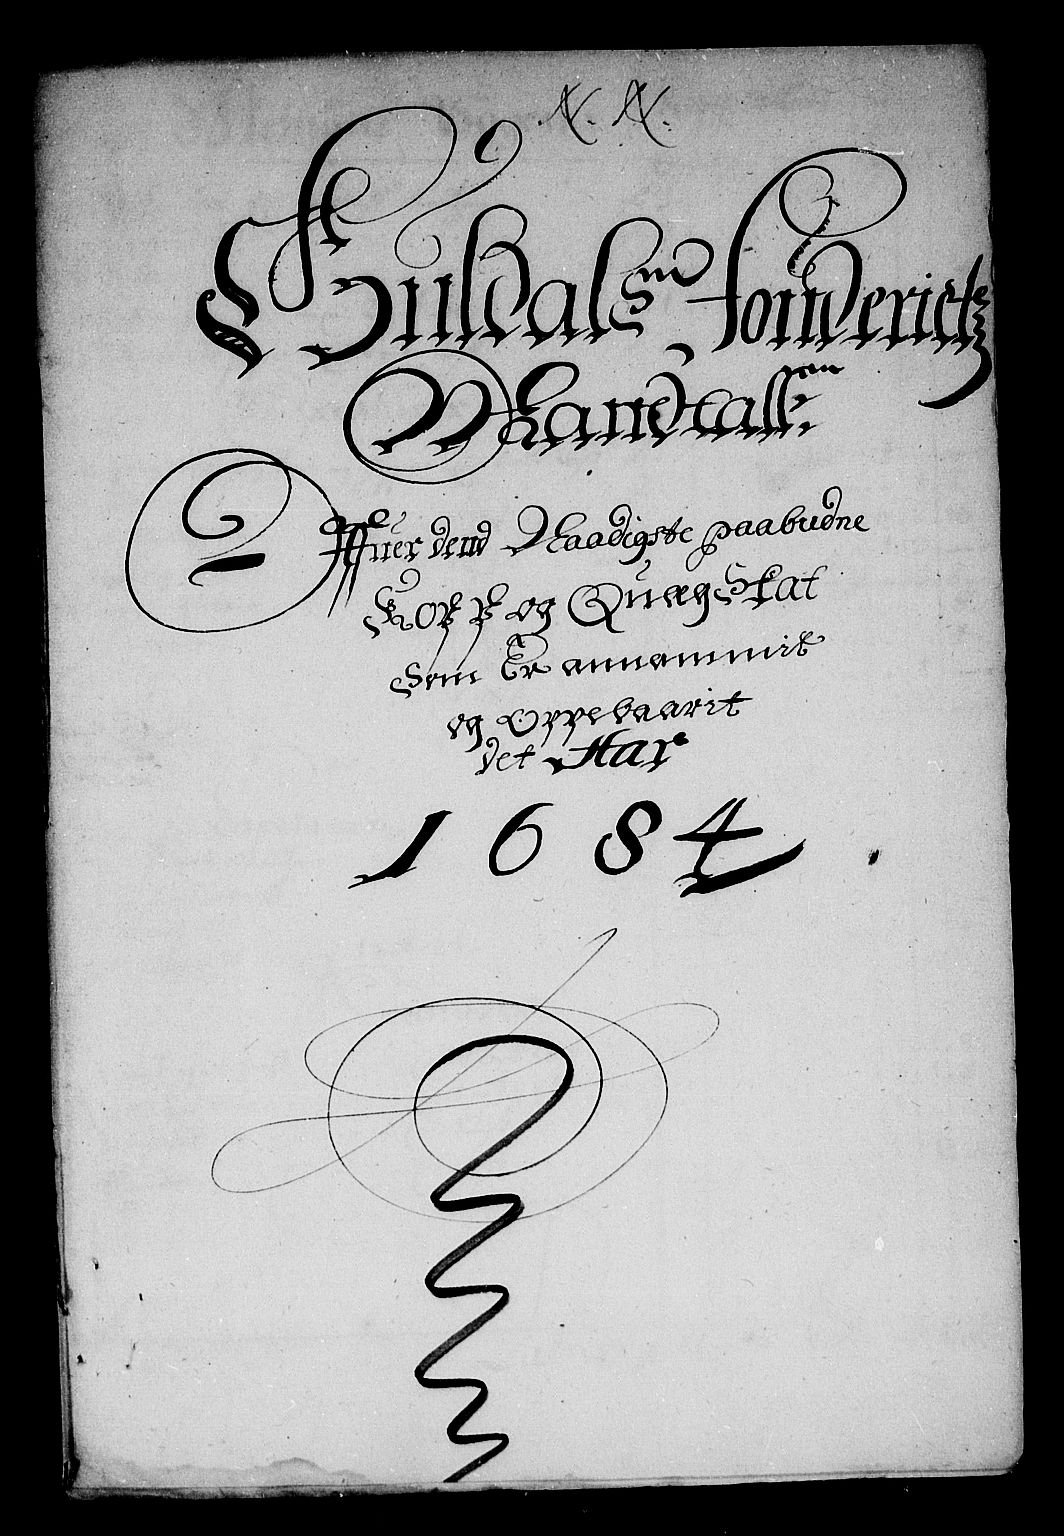 N. N.
Guldals fougderietz
Mandtall
Offuer dend Naadigste paabudne
Kopp og Quæg Skat
Som Er annammit
og Oppebaarit
det Aar
1684